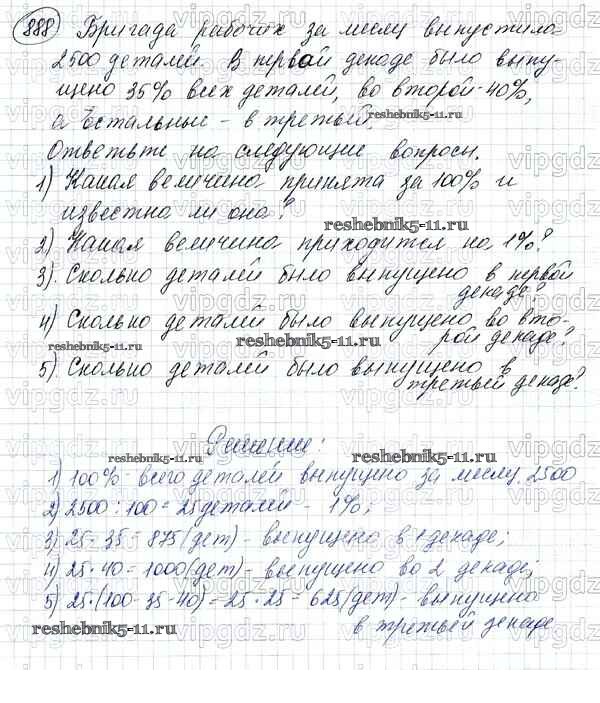 888 Бригада рабочих за месяц выпустила
2500 деталей. В первой декаде было выпу-
щено 35% всех деталей, во второй - 40%,
а остальные - в третьей.
Ответьте на следующие вопросы.
1) Какая величина принята за 100% и
известна ли она?
2) Какая величина приходится на 1%?
3) Сколько деталей было выпущено в первой
декаде?
4) Сколько деталей было выпущено во вто-
рой декаде?
5) Сколько деталей было выпущено в
третьей декаде?
Решение:
1) 100% - всего деталей выпущено за месяц 2500
2) 2500 : 100 = 25 деталей - 1%;
3) 25 · 35 = 875 (дет) - выпущено в 1 декаде;
4) 25 · 40 = 1000 (дет) - выпущено во 2 декаде;
5) 25 · (100 - 35 - 40) = 25 · 25 = 625 (дет) - выпущено
в третьей декаде
reshebnik5-11.ru
reshebnik5-11.ru
reshebnik5-11.ru
reshebnik5-11.ru
reshebnik5-11.ru
reshebnik5-11.ru
reshebnik5-11.ru
vipgdz.ru